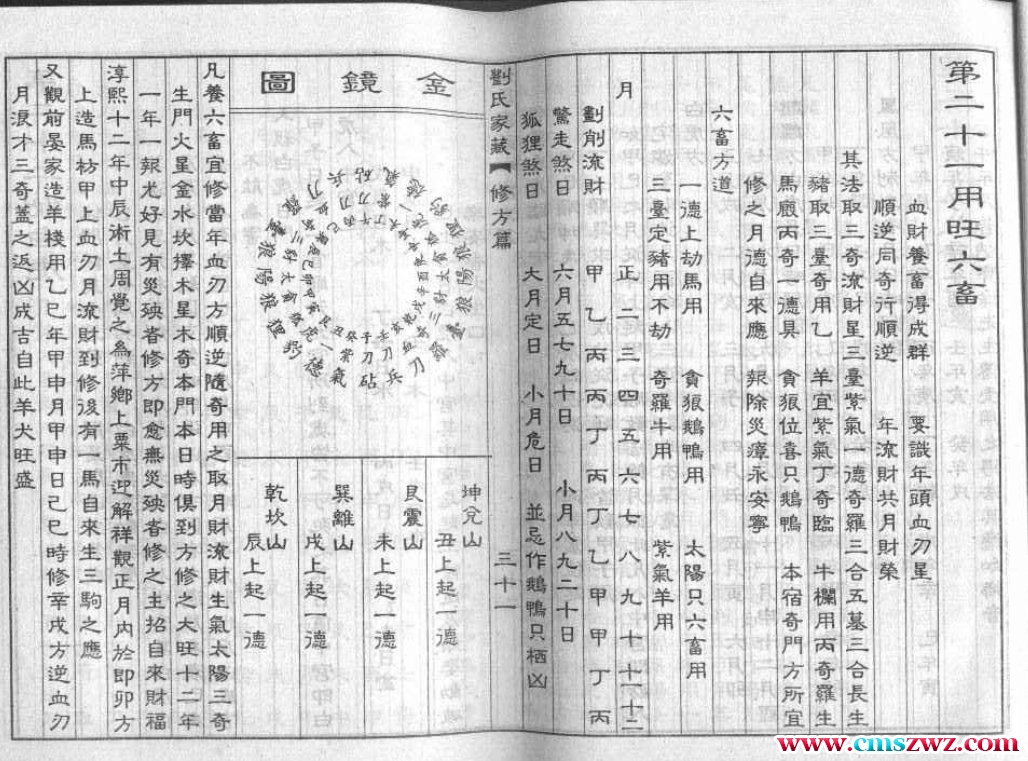 第二十一用旺六畜
血財養畜得成群　要識年頭血刃星
順逆同奇行順逆　年流財共月財榮
其法取三奇流財星三臺紫氣一德奇羅三合五墓三合長生
豬取三臺奇用乙　羊宜紫氣丁奇臨　牛欄用丙奇羅生
馬廄丙奇一德具　貪狼位喜只鵝鴨　本宿奇門方所宜
修之月德自來應　報除災瘴永安寧
六畜方道
一德上劫馬用　貪狼鵝鴨用　太陽只六畜用
三臺定豬用不劫　奇羅牛用　紫氣羊用
月　正二三四五六七八九十十一十二
劃削流財　甲乙丙丙丁丙丁乙甲甲丁丙
驚走煞日　六月五七九十日　小月八九二十日
狐狸煞日　大月定日　小月危日　並忌作鵝鴨只栖凶
劉氏家藏【修方篇　三十一
金鏡圖
坤兌山　丑上起一德
艮震山　未上起一德
巽離山　戌上起一德
乾坎山　辰上起一德
凡養六畜宜修當年血刃方順逆隨奇用之取月財流財生氣太陽三奇
生門火星金水坎擇木星木奇本門本日時俱到方修之大旺十二年
一年一報尤好見有災殃者修方即愈無災殃者修之主招自來財福
淳熙十二年中辰術士周覺之為萍鄉上粟市迎解祥觀正月內於即卯方
上造馬枋甲上血刃月流財到修後有一馬自來生三駒之應
又觀前晏家造羊棧用乙巳年甲申月甲申日己巳時修幸戌方逆血刃
月浪才三奇蓋之返凶成吉自此羊犬旺盛
www.cmszwz.com